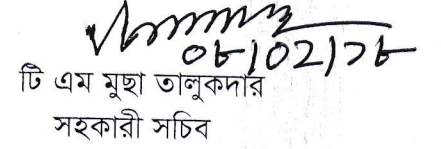 ০৮/০২/১৮
টি এম মুছা তালুকদার
সহকারী সচিব